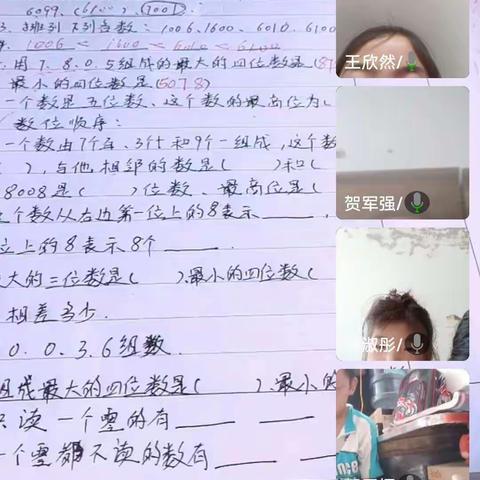 6099、(6100)、(7001)
3. 排列下列各数：1006、1600、6010、6100
1006 < 1600 < 6010 < 6100
用 7、8、0、5组成的最大的四位数是(87
最小的四位数是(5078)
一个数是五位数、这个数的最高位为(
数位顺序：
一个数由7个百、3个十和9个一组成，这个数
( )，与他相邻的数是( )和(
8008是( )位数、最高位是(
这个数从右边第一位上的8表示____，
位上的8表示8个____．
大的三位数是( )、最小的四位数(
相差多少．
0、0、3、6组数．
组成最大的四位数是( )、最小的
只读一个零的有____ ____
一个零都不读的数有____ ____
王欣然/
贺军强/
淑彤/